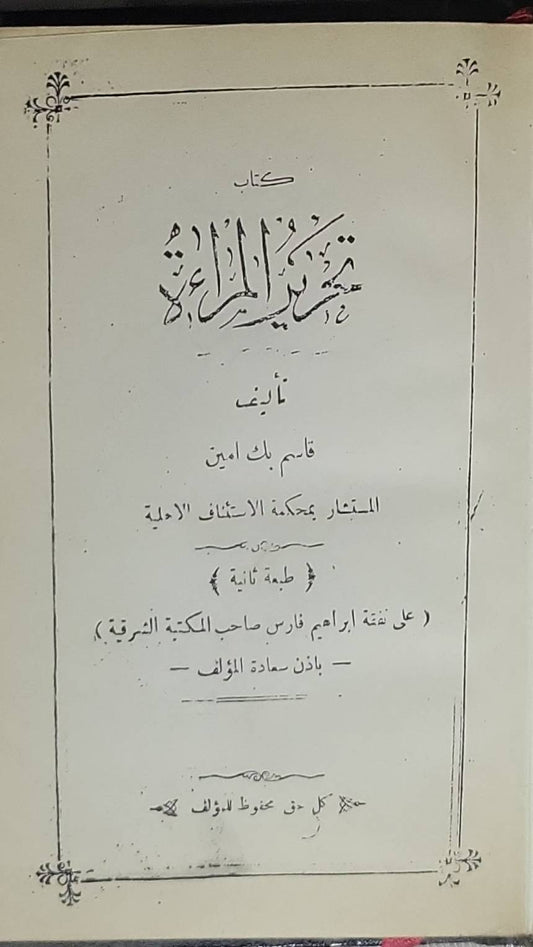 كتاب
تحرير المراءة
تأليف
قاسم بك امين
المستشار بمحكمة الاستئناف الاهلية
﴿ طبعة ثانية ﴾
( على نفقة ابراهيم فارس صاحب المكتبة الشرقية )
— باذن سعادة المؤلف —
كل حق محفوظ للمؤلف